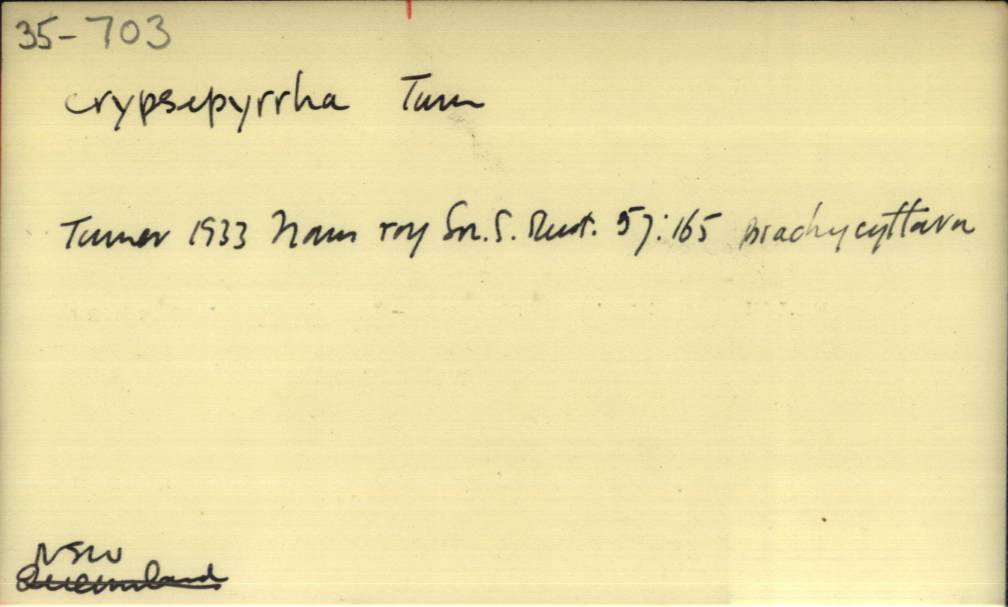 35-703
crypsepyrrha Turn
Turner 1933 Trans roy Soc. S. Aust. 57:165 Brachycyttara
NSW
Queensland